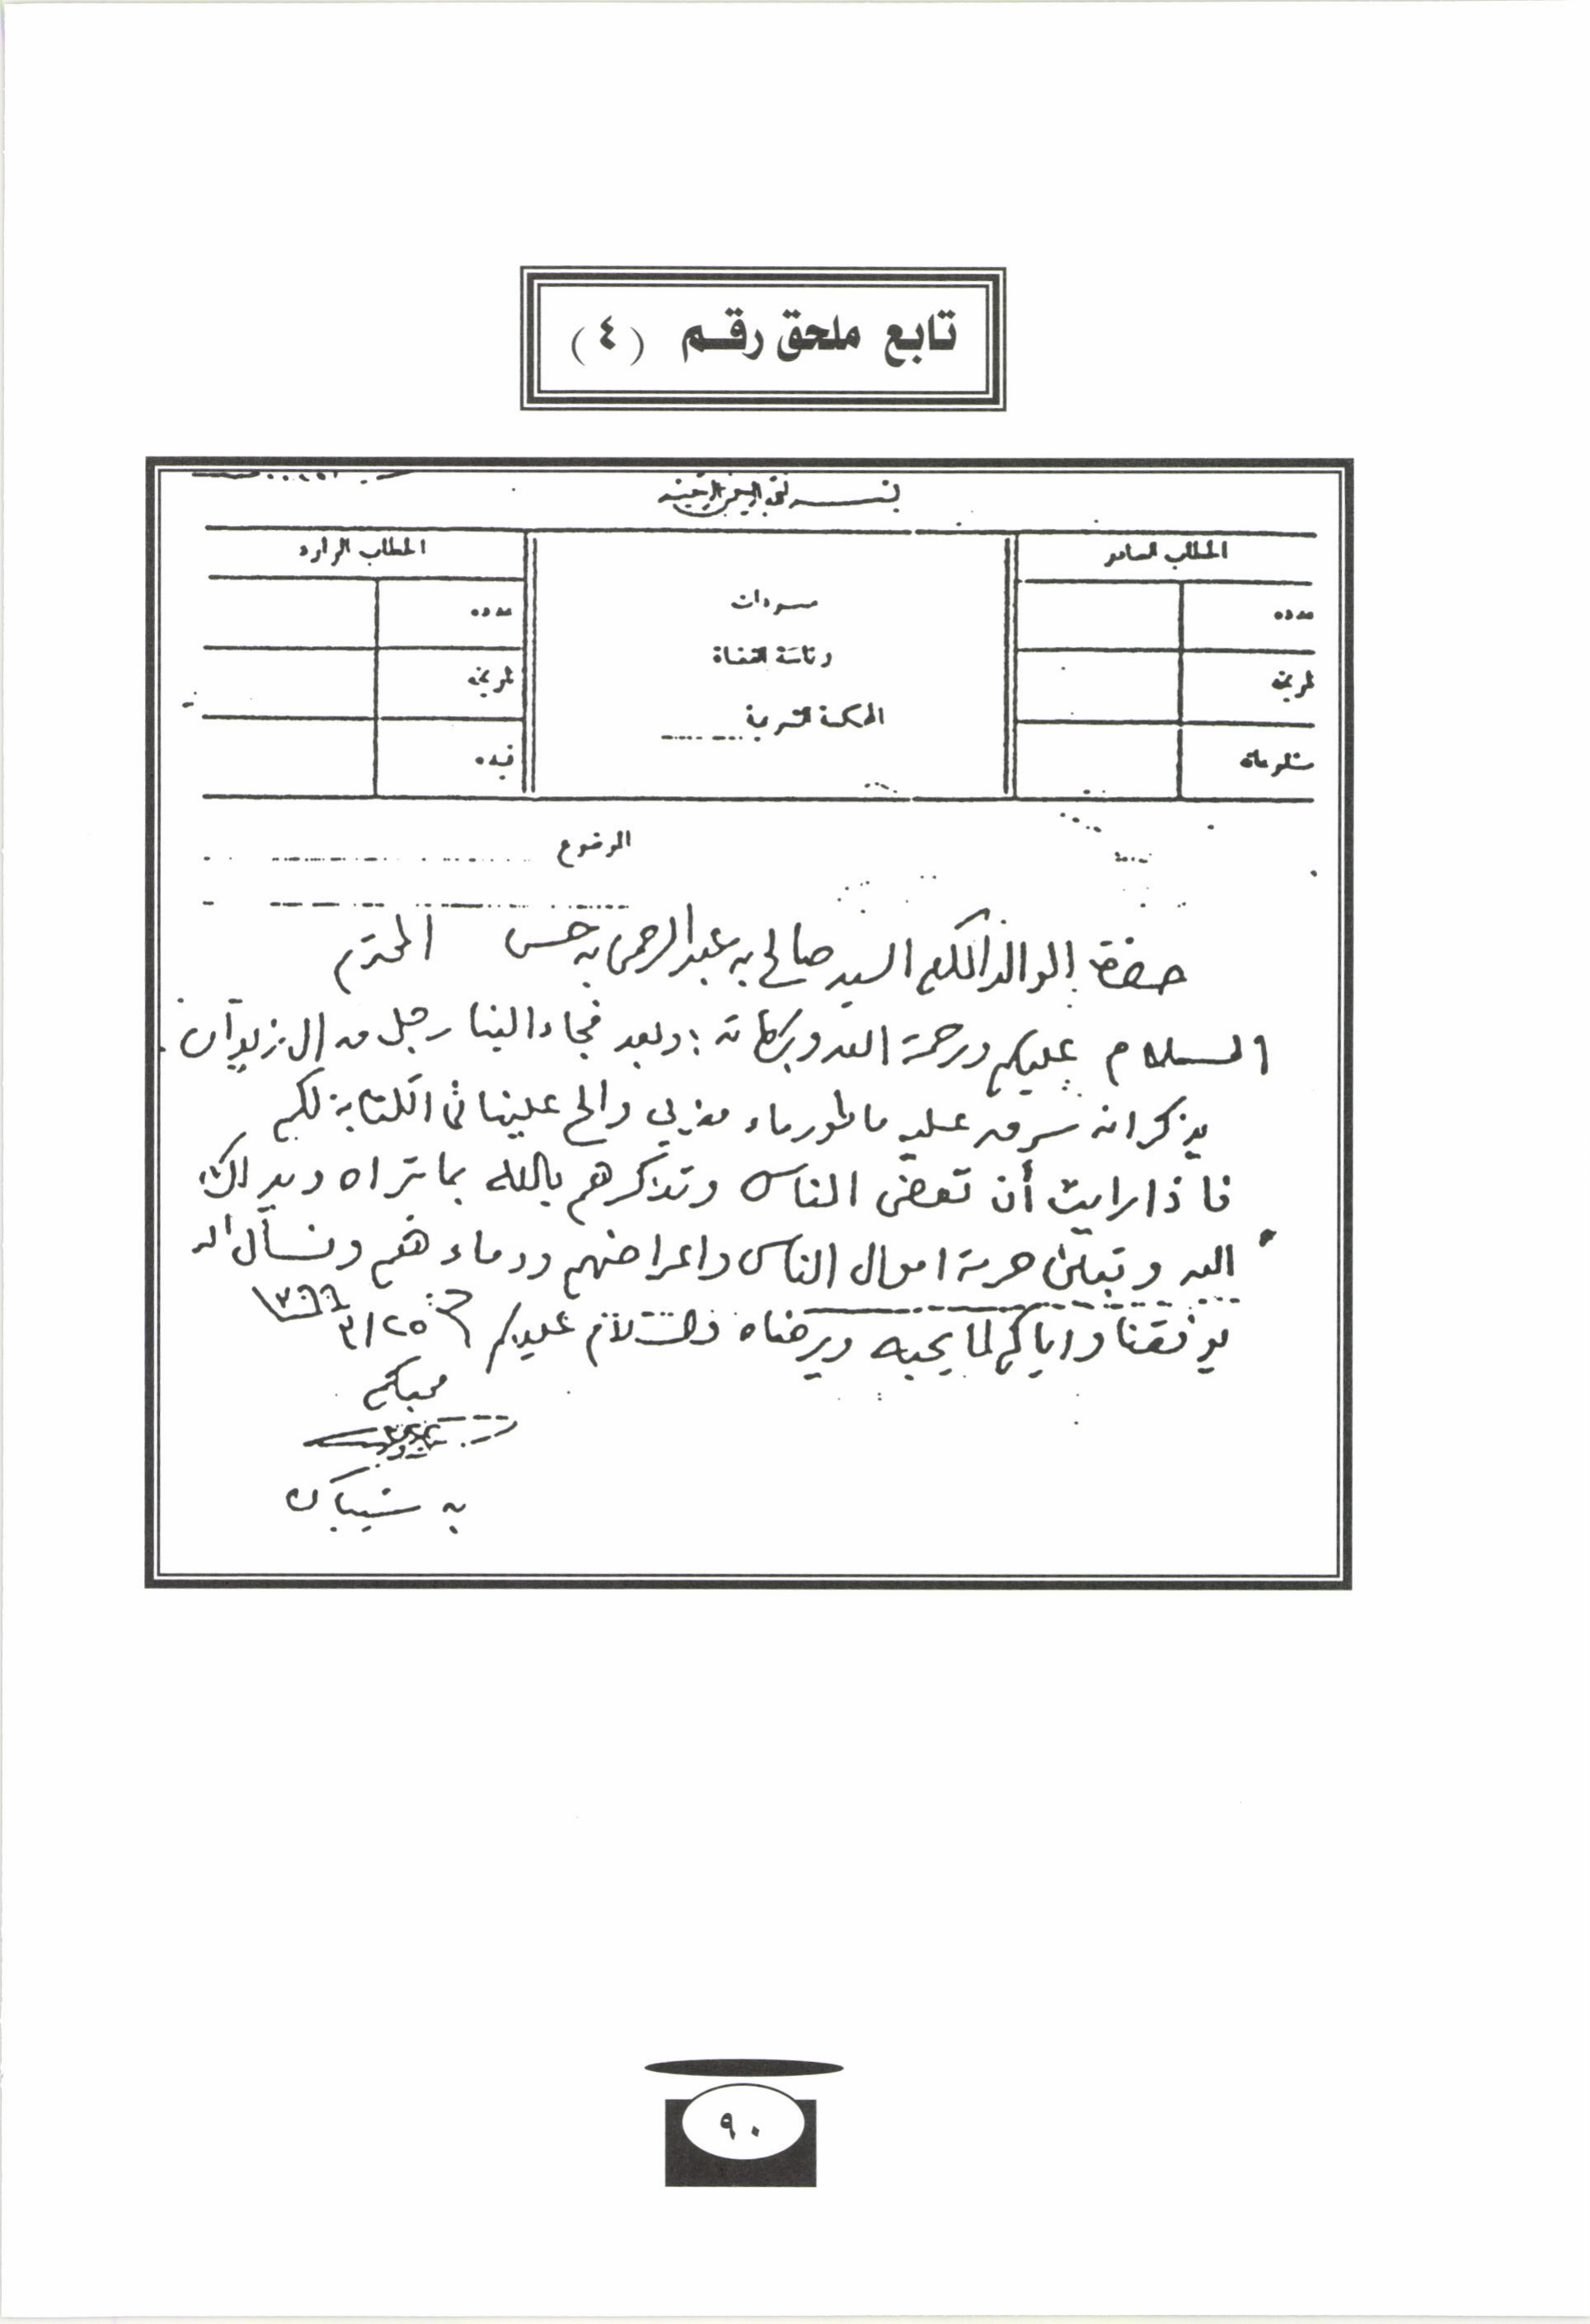 تابع ملحق رقم (٤)
بسم الله الرحمن الرحيم
الخطاب الصادر
الخطاب الوارد
مسودات
عدده
عدده
رئاسة القضاة
تاريخه
تاريخه
المحكمة الشرعية
قيده
الموضوع
حضرة الوالد المكرم السيد صالح بن عبد الرحمن بن حسن المحترم
السلام عليكم ورحمة الله وبركاته: وبعد فجاء الينا رجل من ال
يذكر انه سرق عليه ماطور ماء والح علينا في الكتابة لكم
فاذا رايت أن تعض الناس وتذكرهم بالله بما تراه
الله وتبين حرمة اموال الناس واعراضهم ودماءهم ونسأل الله
يوفقنا واياكم لما يحبه ويرضاه والسلام عليكم ٢٥/٣ ١٣٦٦
محبكم
بن شيبان
٩٠